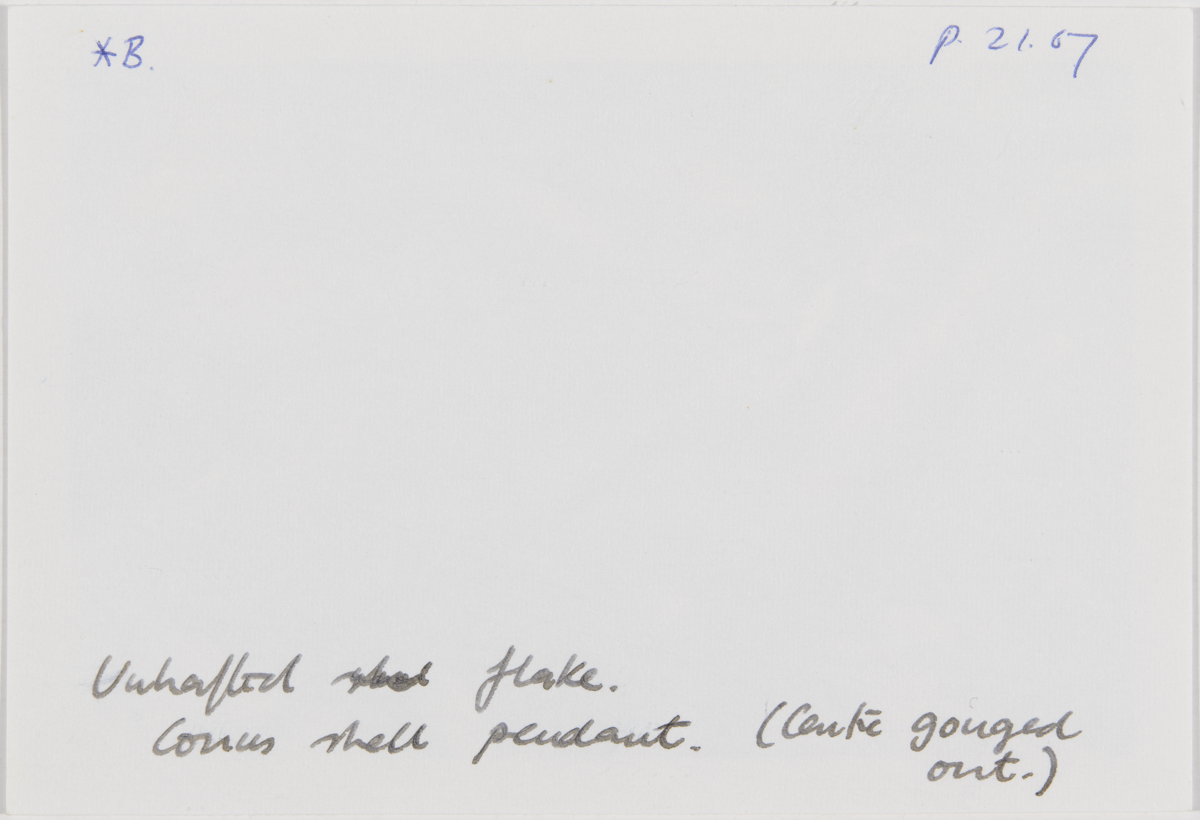 *B.
P. 21.67
Unhafted flake.
Conus shell pendant. (Centre gouged
out.)